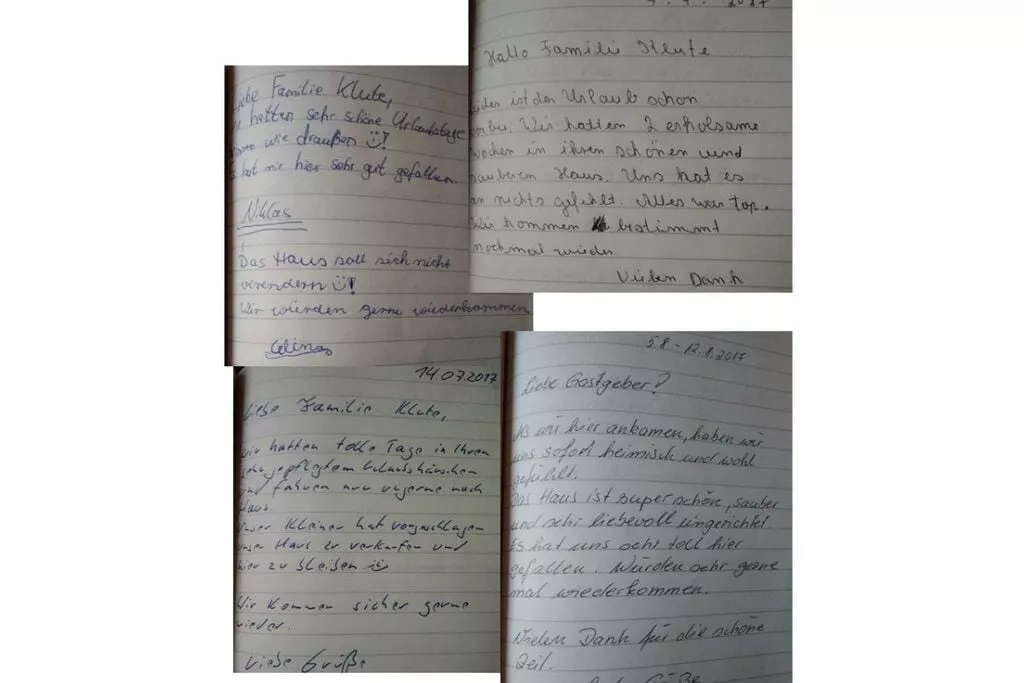 Liebe Familie Klute,
hatten sehr schöne Urlaubstage
wie draußen
hat mir hier sehr gut gefallen.
Niklas
Das Haus soll sich nicht
verendern
Wir würden gerne wiederkommen
Celina
2017
Hallo Familie Klute
leider ist der Urlaub schon
vorbei. Wir hatten 2 erholsame
Wochen in ihren schönen und
sauberen Haus. Uns hat es
an nichts gefehlt. Alles war top.
Wir kommen bestimmt
nochmal wieder
Vielen Dank
14.07.2017
Liebe Familie Klute,
wir hatten tolle Tage in Ihrem
sehr gepflegtem Urlaubshäuschen
und fahren nur ungerne nach
Haus.
Unser Kleiner hat vorgeschlagen
unser Haus zu verkaufen und
hier zu bleiben
Wir kommen sicher gerne
wieder.
Liebe Grüße
5.8 - 12.8.2017
Liebe Gastgeber?
Als wir hier ankamen, haben wir
uns sofort heimisch und wohl
gefühlt.
Das Haus ist super schön, sauber
und sehr liebevoll eingerichtet.
Es hat uns sehr toll hier
gefallen. Würden sehr gerne
mal wiederkommen.
Vielen Dank für die schöne
Zeit.